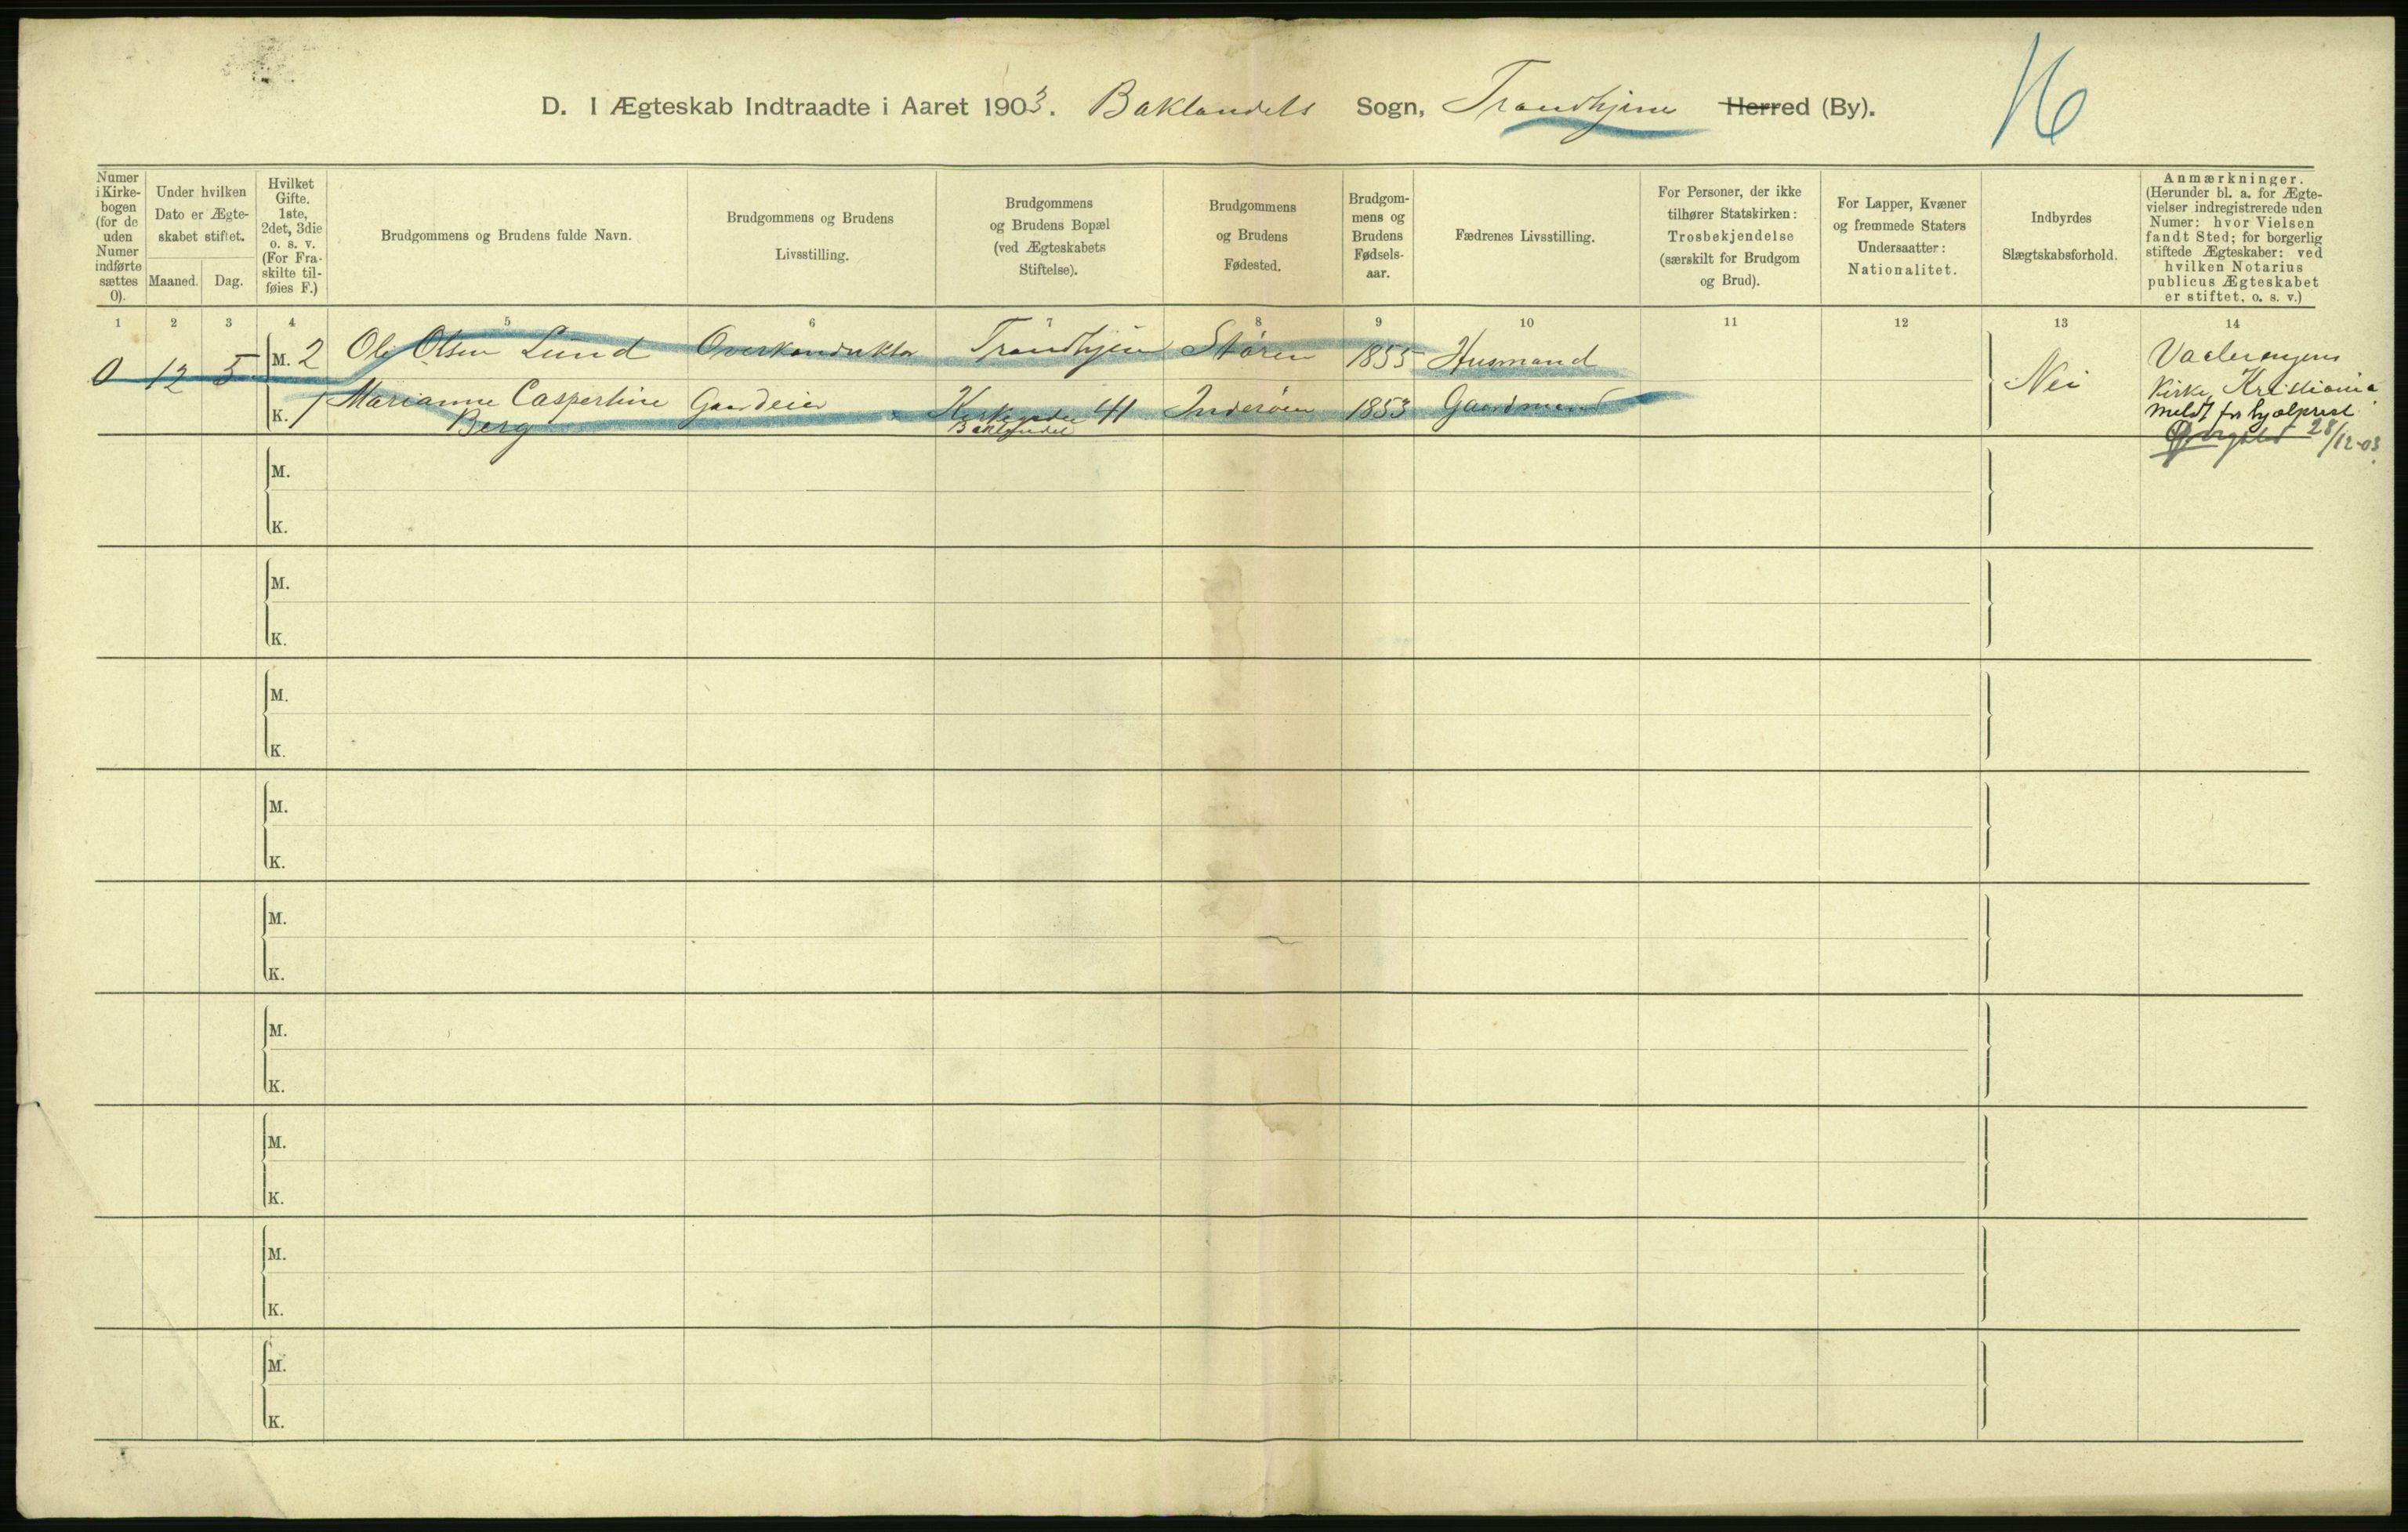 D. I Ægteskab Indtraadte i Aaret 1903. Baklandets Sogn, Trondhjem Herred (By).
16
Numer i Kirke-bogen (for de uden Numer indførte sættes 0).
Under hvilken Dato er Ægte-skabet stiftet.
Maaned. Dag.
Hvilket Gifte. 1ste, 2det, 3die o. s. v. (For Fra-skilte til-føies F.)
Brudgommens og Brudens fulde Navn.
Brudgommens og Brudens Livsstilling.
Brudgommens og Brudens Bopæl (ved Ægteskabets Stiftelse).
Brudgommens og Brudens Fødested.
Brudgom-mens og Brudens Fødsels-aar.
Fædrenes Livsstilling.
For Personer, der ikke tilhører Statskirken: Trosbekjendelse (særskilt for Brudgom og Brud).
For Lapper, Kvæner og fremmede Staters Undersaatter: Nationalitet.
Indbyrdes Slægtskabsforhold.
Anmærkninger. (Herunder bl. a. for Ægte-vielser indregistrerede uden Numer: hvor Vielsen fandt Sted; for borgerlig stiftede Ægteskaber: ved hvilken Notarius publicus Ægteskabet er stiftet, o. s. v.)
1 2 3 4 5 6 7 8 9 10 11 12 13 14
0 12 5 M. 2 Ole Olsen Lund Overkonduktør Trondhjem Støren 1855 Husmand
K. 1 Marianne Caspertine Berg Gaardeier 41 Baklandet Inderøen 1853 Gaardmand
Nei
Vaalerengens
Kirke, Kristiania
meldt for hjælprest
28/12-03
M.
K.
M.
K.
M.
K.
M.
K.
M.
K.
M.
K.
M.
K.
M.
K.
M.
K.